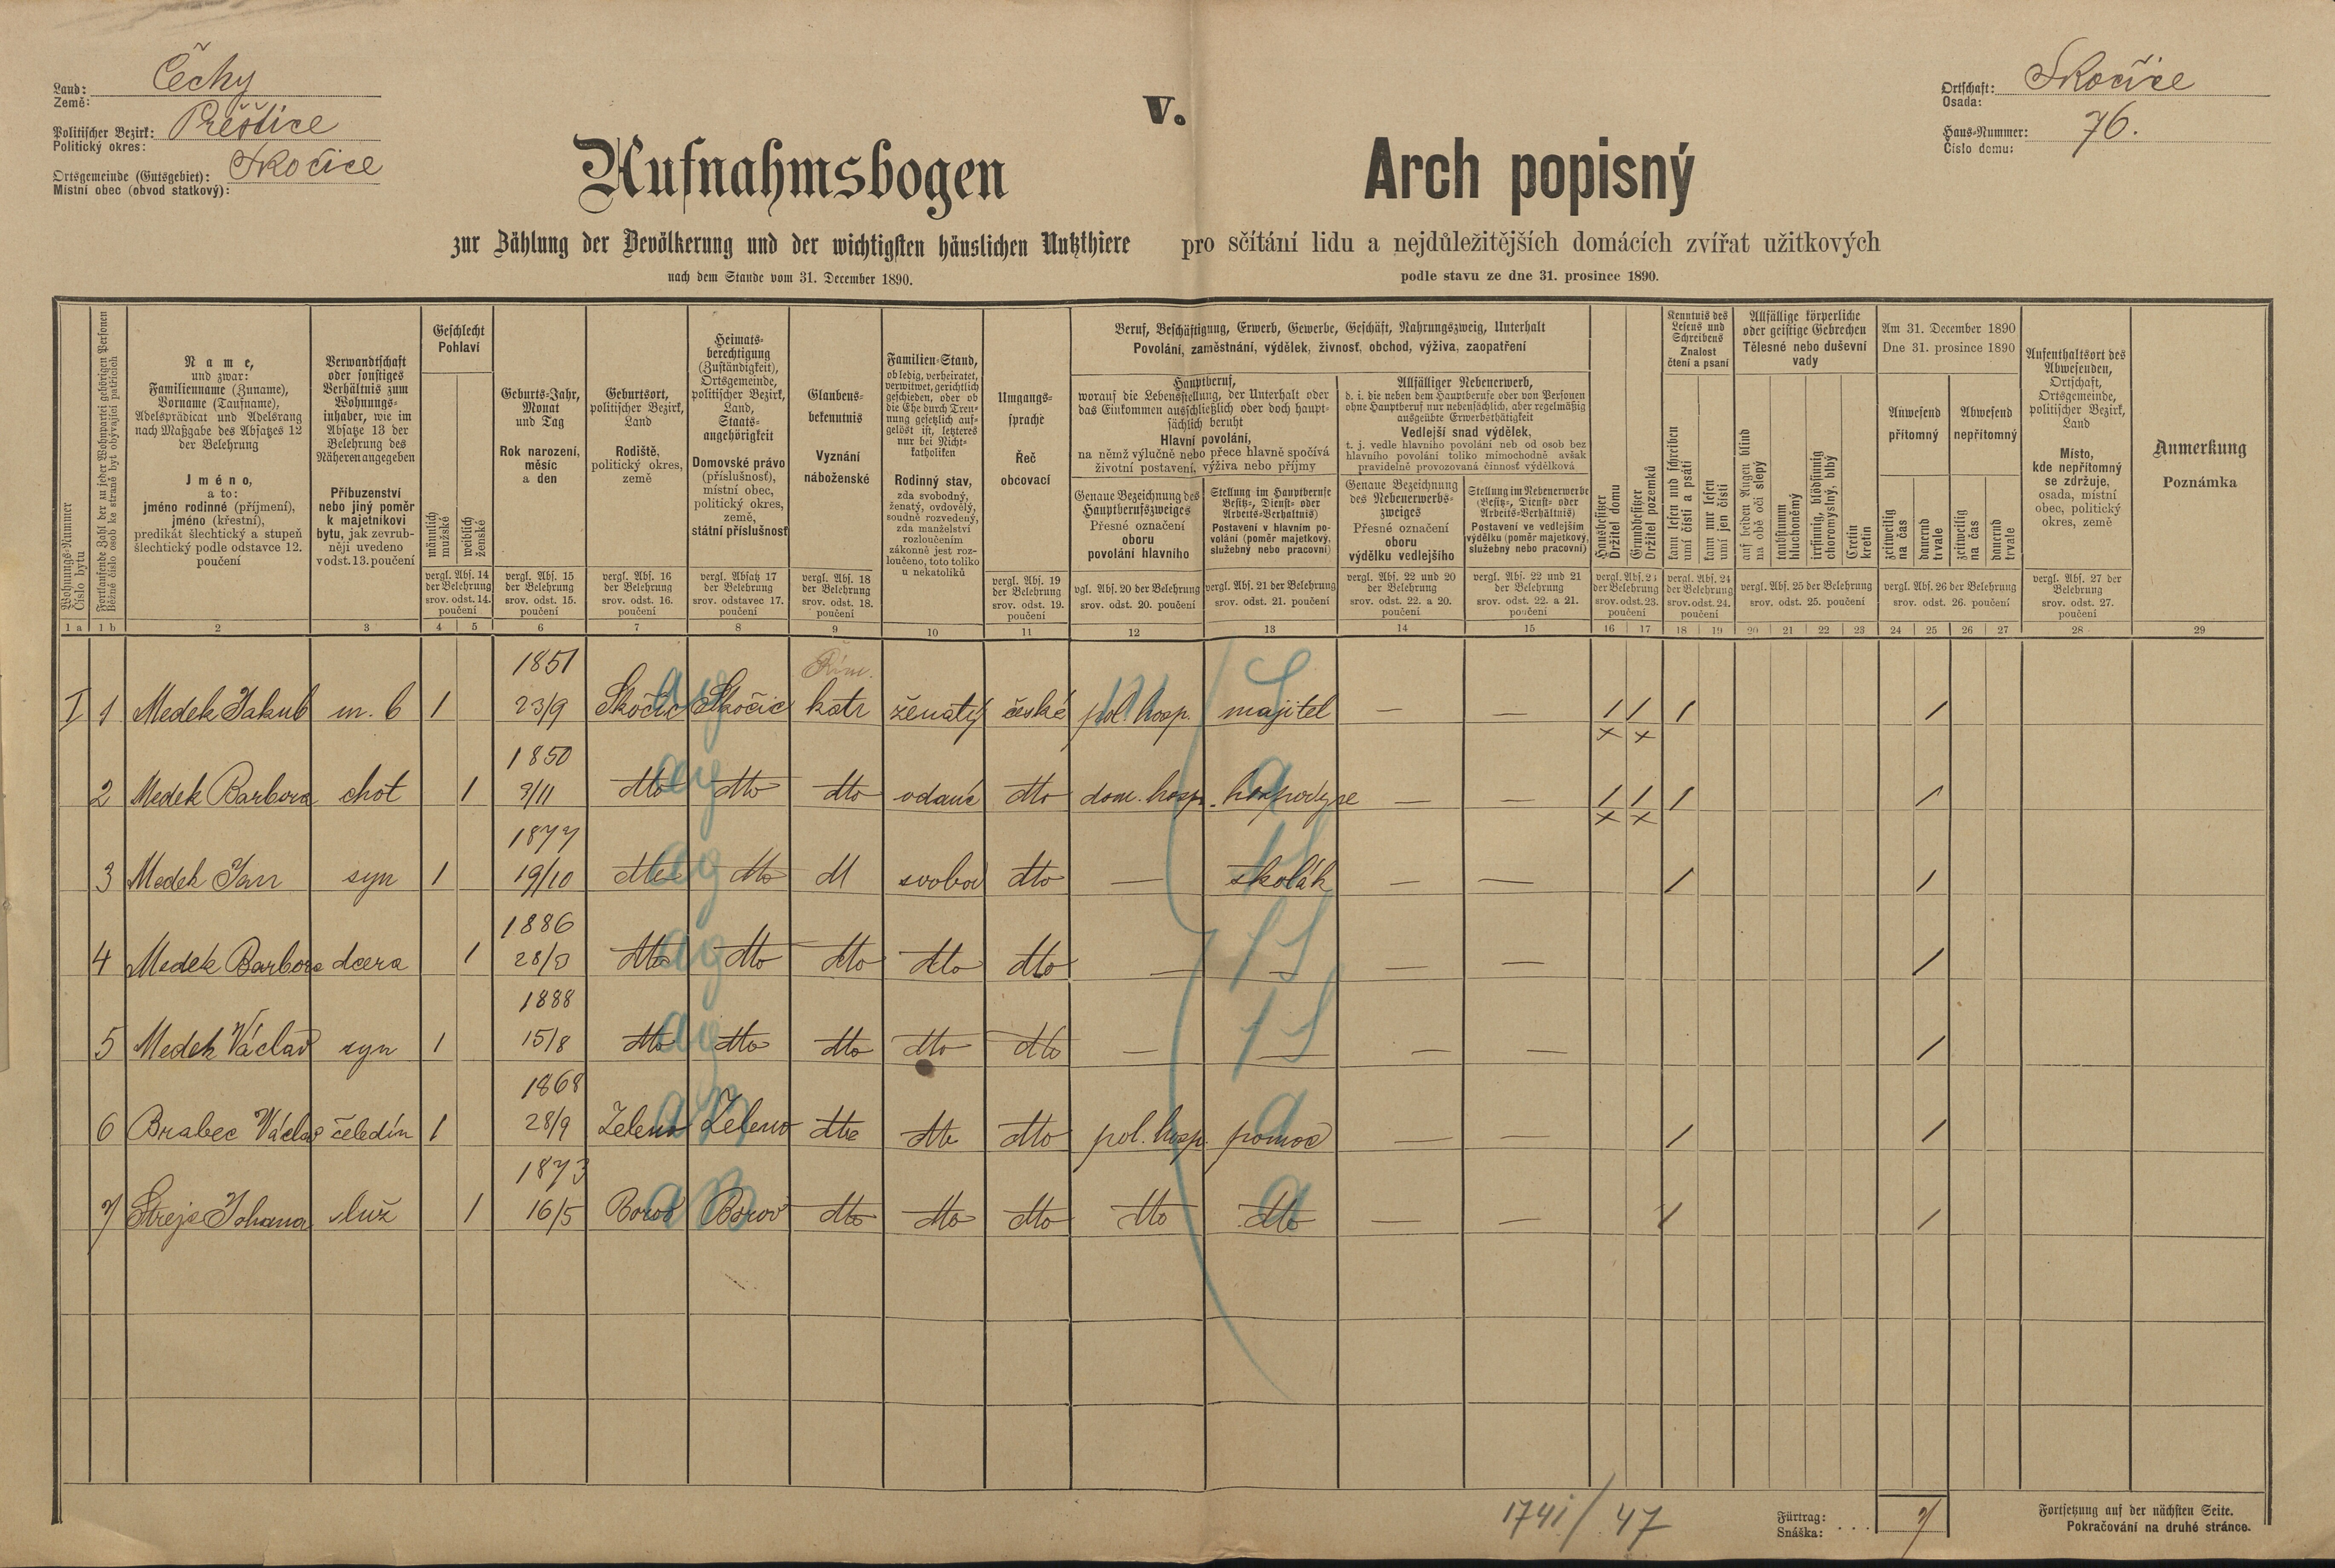 Land: Čechy
Země:
Politischer Bezirk: Přeštice
Politický okres:
Ortsgemeinde (Gutsgebiet): Skočice
Místní obec (obvod statkový):
V.
Ortschaft: Skočice
Osada:
Haus-Nummer: 76.
Číslo domu:
Aufnahmsbogen
zur Zählung der Bevölkerung und der wichtigsten häuslichen Nutzthiere
nach dem Stande vom 31. December 1890.
Arch popisný
pro sčítání lidu a nejdůležitějších domácích zvířat užitkových
podle stavu ze dne 31. prosince 1890.
Wohnungs-Nummer
Číslo bytu
Fortlaufende Zahl der zu jeder Wohnpartei gehörigen Personen
Běžné číslo osob ke straně byt obývající patřících
Name,
und zwar:
Familienname (Zuname),
Vorname (Taufname),
Adelsprädicat und Adelsrang
nach Maßgabe des Absatzes 12
der Belehrung
Jméno,
a to:
jméno rodinné (příjmení),
jméno (křestní),
predikát šlechtický a stupeň
šlechtický podle odstavce 12.
poučení
Verwandtschaft
oder sonstiges
Verhältnis zum
Wohnungs-
inhaber, wie im
Absatze 13 der
Belehrung des
Näheren angegeben
Příbuzenství
nebo jiný poměr
k majetníkovi
bytu, jak zevrub-
něji uvedeno
v odst. 13. poučení
Geschlecht
Pohlaví
männlich
mužské
weiblich
ženské
vergl. Abs. 14
der Belehrung
srov. odst. 14.
poučení
Geburts-Jahr,
Monat
und Tag
Rok narození,
měsíc
a den
vergl. Abs. 15
der Belehrung
srov. odst. 15.
poučení
Geburtsort,
politischer Bezirk,
Land
Rodiště,
politický okres,
země
vergl. Abs. 16
der Belehrung
srov. odst. 16.
poučení
Heimats-
berechtigung
(Zuständigkeit),
Ortsgemeinde,
politischer Bezirk,
Land,
Staats-
angehörigkeit
Domovské právo
(příslušnosť),
místní obec,
politický okres,
země,
státní příslušnosť
vergl. Absatz 17
der Belehrung
srov. odstavec 17.
poučení
Glaubens-
bekenntnis
Vyznání
náboženské
vergl. Abs. 18
der Belehrung
srov. odst. 18.
poučení
Familien-Stand,
ob ledig, verheiratet,
verwitwet, gerichtlich
geschieden, oder ob
die Ehe durch Tren-
nung gesetzlich auf-
gelöst ist, letzteres
nur bei Nicht-
katholiken
Rodinný stav,
zda svobodný,
ženatý, ovdovělý,
soudně rozvedený,
zda manželství
rozloučením
zákonně jest roz-
loučeno, toto toliko
u nekatolíků
Umgangs-
sprache
Řeč
obcovací
vergl. Abs. 19
der Belehrung
srov. odst. 19.
poučení
Beruf, Beschäftigung, Erwerb, Gewerbe, Geschäft, Nahrungszweig, Unterhalt
Povolání, zaměstnání, výdělek, živnosť, obchod, výživa, zaopatření
Hauptberuf,
worauf die Lebensstellung, der Unterhalt oder
das Einkommen ausschließlich oder doch haupt-
sächlich beruht
Hlavní povolání,
na němž výlučně nebo přece hlavně spočívá
životní postavení, výživa nebo příjmy
Genaue Bezeichnung des
Hauptberufszweiges
Přesné označení
oboru
povolání hlavního
vgl. Abs. 20 der Belehrung
srov. odst. 20. poučení
Stellung im Hauptberufe
(Besitz-, Dienst- oder
Arbeits-Verhältnis)
Postavení v hlavním po-
volání (poměr majetkový,
služebný nebo pracovní)
vergl. Abs. 21 der Belehrung
srov. odst. 21. poučení
Allfälliger Nebenerwerb,
d. i. die neben dem Hauptberufe oder von Personen
ohne Hauptberuf nur nebensächlich, aber regelmäßig
ausgeübte Erwerbsthätigkeit
Vedlejší snad výdělek,
t. j. vedle hlavního povolání neb od osob bez
hlavního povolání toliko mimochodně avšak
pravidelně provozovaná činnosť výdělková
Genaue Bezeichnung
des Nebenerwerbs-
zweiges
Přesné označení
oboru
výdělku vedlejšího
vergl. Abs. 22 und 20
der Belehrung
srov. odst. 22. a 20.
poučení
Stellung im Nebenerwerbe
(Besitz-, Dienst- oder
Arbeits-Verhältnis)
Postavení ve vedlejším
výdělku (poměr majetkový,
služebný nebo pracovní)
vergl. Abs. 22 und 21
der Belehrung
srov. odst. 22. a 21.
poučení
Hausbesitzer
Držitel domu
Grundbesitzer
Držitel pozemků
vergl. Abs. 23
der Belehrung
srov. odst. 23.
poučení
Kenntnis des
Lesens und
Schreibens
Znalost
čtení a psaní
kann lesen und schreiben
umí čísti a psáti
kann nur lesen
umí jen čísti
vergl. Abs. 24
der Belehrung
srov. odst. 24.
poučení
Allfällige körperliche
oder geistige Gebrechen
Tělesné nebo duševní
vady
auf beiden Augen blind
na obě oči slepý
taubstumm
hluchoněmý
irrsinnig, blödsinnig
choromyslný, blbý
Cretin
kretin
vergl. Abs. 25 der Belehrung
srov. odst. 25. poučení
Am 31. December 1890
Dne 31. prosince 1890
Anwesend
přítomný
Abwesend
nepřítomný
zeitweilig
na čas
dauernd
trvale
zeitweilig
na čas
dauernd
trvale
vergl. Abs. 26 der Belehrung
srov. odst. 26. poučení
Aufenthaltsort des
Abwesenden,
Ortschaft,
Ortsgemeinde,
politischer Bezirk,
Land
Místo,
kde nepřítomný
se zdržuje,
osada, místní
obec, politický
okres, země
vergl. Abs. 27 der
Belehrung
srov. odst. 27.
poučení
Anmerkung
Poznámka
1 a 1 b 2 3 4 5 6 7 8 9 10 11 12 13 14 15 16 17 18 19 20 21 22 23 24 25 26 27 28 29
1851 Řím.
I 1 Medek Jakub m. b 1 23/9 Skočic Skočic katr ženatý české pol. hosp. majitel — — / / / /
× ×
1850
2 Medek Barbora choť 1 3/11 dto dto dto vdaná dto dom. hosp. hospodyně — — / / / /
× ×
1877
3 Medek Jan syn 1 19/10 dto dto dt svobod dto — školák — — / /
1886
4 Medek Barbora dcera 1 28/8 dto dto dto dto dto — — — — /
1888
5 Medek Václav syn 1 15/8 dto dto dto dto dto — — — — /
1868
6 Brabec Václav čeledín 1 28/9 Zeleno Zeleno dto dto dto pol. hosp. pomoc — — / /
1873
7 Streje Johana služ 1 16/5 Borov Borov dto dto dto dto dto — — / /
1741/47
Fürtrag:
Snáška: . . . 7
Fortsetzung auf der nächsten Seite.
Pokračování na druhé stránce.